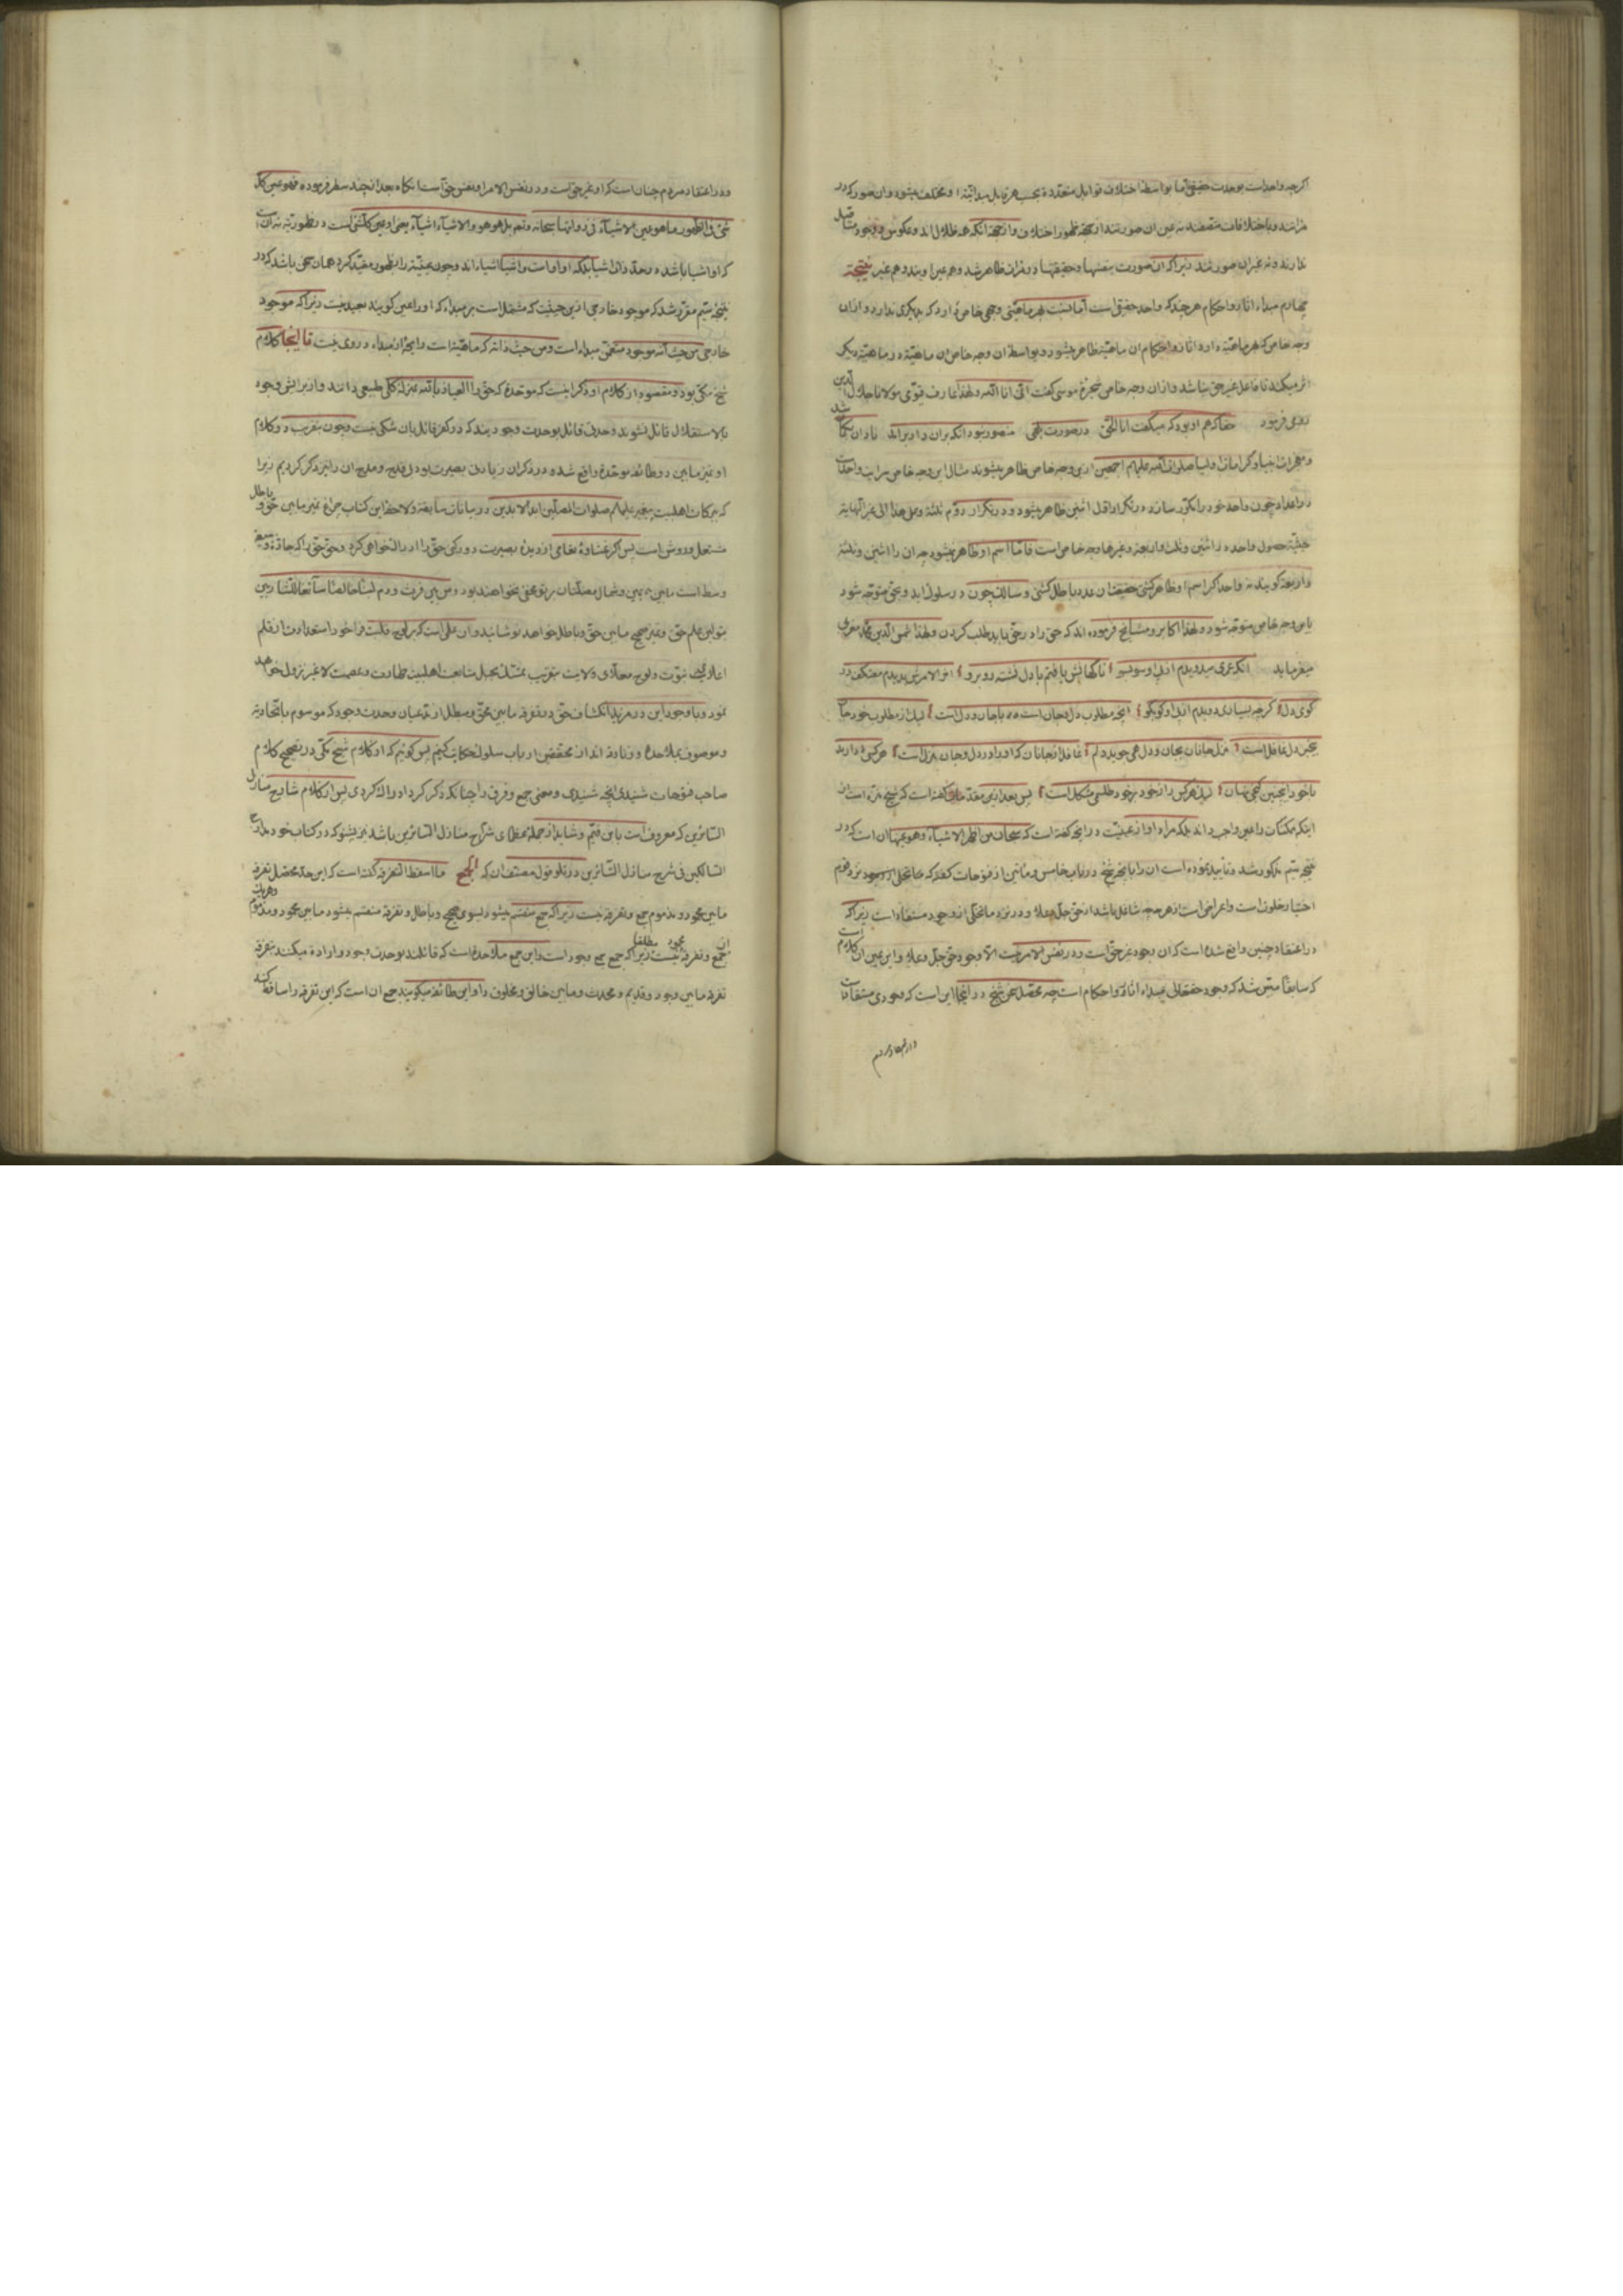 اکرچه واحد است بوحدت حقیقی اما بواسطهٔ اختلاف قوابل متعدده بحسب هر قابل مبدائیة او مختلف میشود وان صور که در
مرا تند وباختلافات متصفند نه عین ان صورتند از جهة ظهور اختلاف واز جهة انکه همه ظلال اند وعکوس ووجود متاصل
ندارند ونه غیر ان صورتند زیراکه ان صورت بنفسها وحقیقتها در مرات ظاهر شد وهم عین اویند وهم غیر نتیجهٔ
چهارم مبداء اثار واحکام هر چند که واحد حقیقی است اما بنسبت بهر ماهیتی وجهی خاص دارد که بدیکری ندارد واز ان
وجه خاص که هر ماهیة دارد اثار واحکام ان ماهیة ظاهر میشود وبواسطهٔ ان وجه خاص ان ماهیة در ماهیة دیکر
اثر میکند تا فاعل غیر حق نباشد واز ان وجه خاص شجرهٔ موسی کفت انی انا الله ولهذا عارف قیومی مولانا جلال الدین
رومی فرمود حقاکه هم او بود که میکفت انا الحق در صورت بلهی منصور نبود انکه بران دار برامد نادان بکمان شد
ومعجزات انبیا وکرامات اولیا صلوات الله علیهم اجمعین ازین وجه خاص ظاهر میشوند مثال این وجه خاص سرایت واحد است
در اعداد چون واحد خود را مکرر سازد در تکرار اول اثنین ظاهر میشود ودر تکرار دوم ثلثة وعلی هذا الی غیر النهایة
حیثیة حصول واحد در اثنین وثلث واربعه وغیرها وجه خاص است فاما اسم او ظاهر نمیشود چه ان را اثنین وثلثة
واربعة کویند نه واحد اکر اسم او ظاهر کشتی حقیقت ان عدد باطل کشتی وسالک چون در سلوک اید وبحق متوجه شود
باین وجه خاص متوجه شود ولهذا اکابر ومشایخ فرموده اند که حق را در حق باید طلب کردن ولهذا شمس الدین محمد مغربی
میفرماید انکه عمری میدویدم از پی او سو بسو ناکهانش یافتم با دل نشسته روبرو اخر الامرش بدیدم معتکف در
کوی دل کرچه بسیاری دویدم از پی او کو بکو انچه مطلوب دل وجان است با جان ودل است لیک از مطلوب خود جان
بیخبر دل غافل است منزل جانان بجان ودل همی جوید دلم غافل از جانان که او را در دل وجان منزل است هر کسی دارند
با خود اینچنین کنجی نهان لیک هر کس را ز خود بر خود طلسمی مشکل است پس بعد ازین مقدمات کفته است که شیخ منزه است از
اینکه ممکنات را عین واجب داند بلکه مراد او از عینیت در انچه کفته است که سبحان من اظهر الاشیاء وهو عینها ان است که در
نتیجه سیم مذکور شد وتایید نموده است ان را بانچه شیخ در باب خامس ومائتین از فتوحات کفته که نزد قوم
اختیار خلوت است واعراض است از هر چه شاغل باشد از حق جل وعلا ودر نزد ما تخلی از وجود مستفاد است زیراکه
در اعتقاد چنین واقع شده است که ان وجود غیر حق است ودر نفس الامر نیست الا وجود حق جل وعلا واین عین ان کلام است
که سابقا مبین شد که وجود حقتعالی مبداء اثار واحکام است چه محصل سخن شیخ در اینجا این است که وجودی مستفاد است
ودر اعتقاد مردم چنان است که او غیر حق است ودر نفس الامر او نفس حق است انکاه بعد از چند سطر فرموده فهو عین کل
شیء فی الظهور ما هو عین الاشیاء فی ذواتها سبحانه وتعالی بل هو هو والاشیاء اشیاء یعنی او عین کل شیء است در ظهور نه ان است
که او اشیا باشد در حد ذات اشیا بلکه او او است واشیا اشیاء اند وچون عینیة را بظهور مقید کرد همان سخن باشد که در
نتیجه سیم مقرر شد که موجود خارجی ازین حیثیت که مشتمل است بر مبداء که او را عین کویند بعید نیست زیراکه موجود
خارجی من حیث انه موجود متضمن مبداء است ومن حیث ذاته که ماهیة است رایحهٔ از مبداء در وی نیست تا اینجا کلام
شیخ مکی بود ومقصود از کلام او ذکر اینست که موحده که حق را العیاذ بالله بمنزله کلی طبیعی دانند واز برایش وجود
بالاستقلال قائل نشوند وحدتی قائل بوحدت وجودیند که در کفر قائل بان شکی نیست وچون بتقریب در کلام
او تمیز مابین دو طائفه موحده واقع شده ودر ذکر ان زیادتی بصیرت بود ملیح وملیح ان را نیز ذکر کردیم زیرا
که ببرکات اهلبیت پیغمبر علیهم صلوات المصلین ابد الابدین در بیانات سابقه ولاحقهٔ این کتاب چراغ تمیز مابین حق وباطل
مشتعل وروشن است پس اکر غشاوهٔ تعامی از دیدهٔ بصیرت دور کنی حق را ادراک خواهی کرد وحق حق را که جادهٔ وسیعه
وسط است مابین یمین وشمال مضلتان بر تو مخفی نخواهند بود ومن بین فرث ودم لبنا خالصا سائغا للشاربین
بتو این علم حق وتمیز صحیح مابین حق وباطل خواهد نوشانید وان علمی است که بر لوح قلبت فراخور استعدادت از قلم
اعلای نبوت ولوح معلای ولایت بتقریب تمسک بحبل متابعت اهلبیت طهارت وعصمت لا غیر نزول خواهد
نمود وبا وجود این در مزید انکشاف حق در تفرقه مابین محق ومبطل از مدعیان وحدت وجود که موسوم باتحادیه
وموصوف بملاحده وزنادقه اند از محققین ارباب سلوک حکایت کنیم پس کوئیم که از کلام شیخ مکی در تصحیح کلام
صاحب فتوحات شنیدی انچه شنیدی ومعنی جمع وفرق را چنانکه ذکر کرد ادراک کردی پس از کلام شارح منازل
السائرین که معروف است بابن قیم وشاید از جمله عظمای شراح منازل السائرین باشد نیز بشنو که در کتاب خود مدارج
السالکین فی شرح منازل السائرین در تلو قول مصنف ان که الجمع ما اسقط التفرقه کفته است که این حد محصل تفرقه
مابین محمود ومذموم جمع وتفرقه نیست زیراکه جمع منقسم میشود بسوی صحیح وباطل وتفرقه منقسم میشود مابین محمود ومذموم وهریک
از جمع وتفرقه محمود مطلقا نیست زیراکه جمع جمع وجود است واین جمع ملاحده است که قائلند بوحدت وجود واراده میکنند بتفرقه
تفرقه مابین وجود وقدیم ومحدث ومابین خالق ومخلوق را واین طائفه میکویند جمع ان است که این تفرقه را ساقط کند